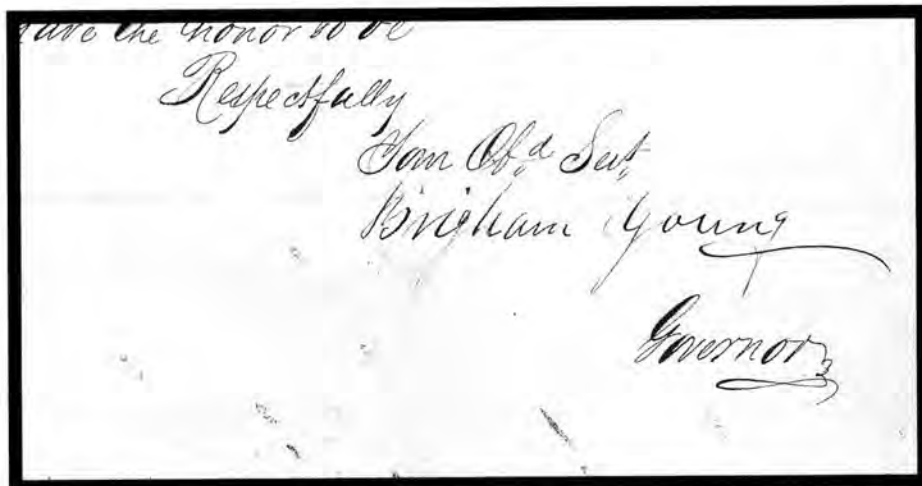 have the honor to be
Respectfully
Your Obd Svt
Brigham Young
Governor